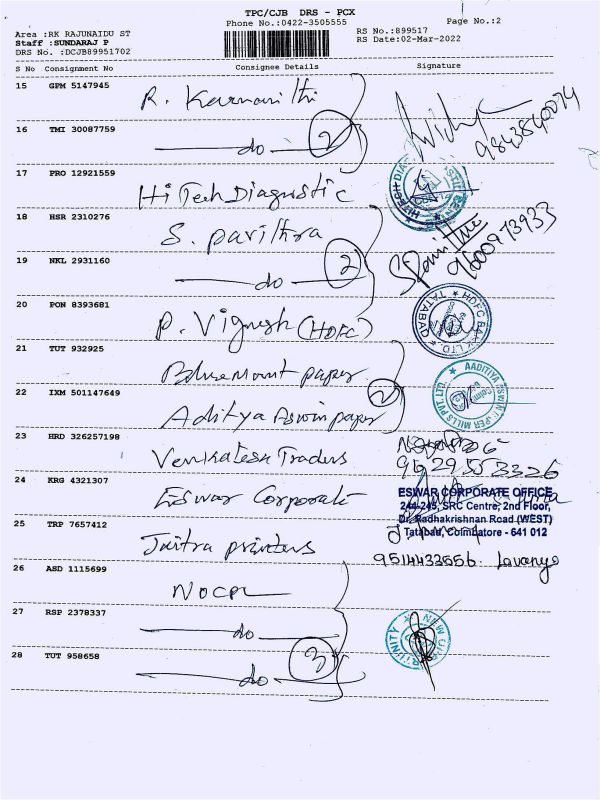 TPC/CJB DRS - PCX
Phone No.:0422-3505555
Page No.:2
Area :RK RAJUNAIDU ST
RS No.:899517
Staff :SUNDARAJ P
RS Date:02-Mar-2022
DRS No. :DCJB89951702
S No Consignment No Consignee Details Signature
15 GPM 5147945 R.
16 TMI 30087759 do 2
9843840074
17 PRO 12921559 HiTech Diagnostic
18 HSR 2310276 S. pavithra
9600973933
19 NKL 2931160 do 2
20 PON 8393681 P. Vignesh (HDFC)
HDFC BANK LTD. TATABAD
21 TUT 932925 Bluemount paper
22 IXM 501147649 Aditya Aswin paper 2
23 HRD 326257198 Venkatesh Traders
9629553326
24 KRG 4321307 Eswar Corporate
ESWAR CORPORATE OFFICE
244-245, SRC Centre, 2nd Floor,
Dr. Radhakrishnan Road (WEST)
Tatabad, Coimbatore - 641 012
25 TRP 7657412 printers
9514433556 Lavanya
26 ASD 1115699
27 RSP 2378337 do
28 TUT 958658 do 3